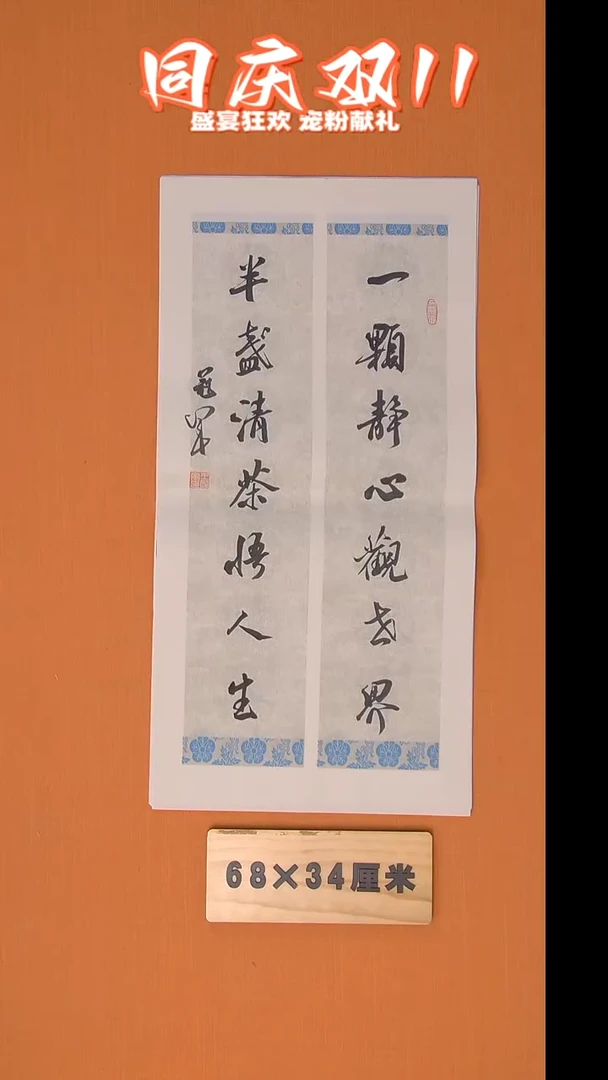 同庆双11
盛宴狂欢 宠粉献礼
一顆静心觀世界
半盏清茶悟人生
68×34厘米